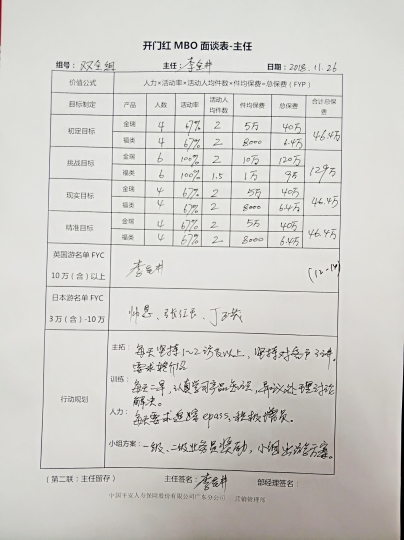 开门红 MBO 面谈表-主任
组号：双金组 主任：李金井 日期：2018.11.26
价值公式 人力×活动率×活动人均件数×件均保费=总保费（FYP）
目标制定 产品 人数 活动率 活动人均件数 件均保费 总保费 合计总保费
初定目标 金瑞 4 67% 2 5万 40万 46.4万
福类 4 67% 2 8000 6.4万
挑战目标 金瑞 6 100% 2 10万 120万 129万
福类 6 100% 1.5 1万 9万
现实目标 金瑞 4 67% 2 5万 40万 46.4万
福类 4 67% 2 8000 6.4万
精准目标 金瑞 4 67% 2 5万 40万 46.4万
福类 4 67% 2 8000 6.4万
英国游名单 FYC
10 万（含）以上
日本游名单 FYC
3 万（含）-10万
行动规划
主拓：每天坚持1~2访及以上，坚持对客户
要求转介绍
训练：每天二早，认真学习产品知识，异议处理讨论
解决。
人力：每天要求追踪epass，积极增员。
小组方案：一级、二级业务员奖励，小组出台方案。
（第二联：主任留存） 主任签名：李金井 部经理签名：
中国平安人寿保险股份有限公司广东分公司 营销管理部